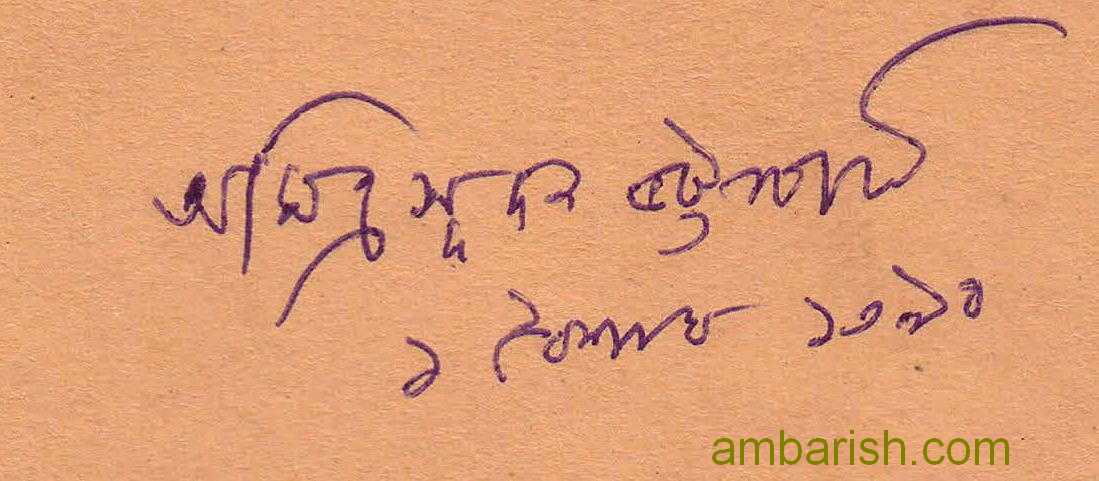 অমিত্রসূদন ভট্টাচার্য
১ বৈশাখ
ambarish.com